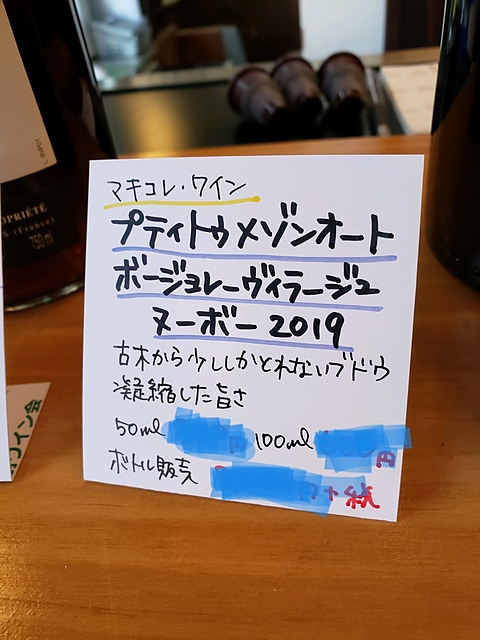 OPRIÉTÉ
(France)
750ml
マキコレ・ワイン
プティトゥメゾンオート
ボージョレーヴィラージュ
ヌーボー 2019
古木から少ししかとれないブドウ
凝縮した旨さ
50ml 100ml 円
ボトル販売 円+税
ワイン会